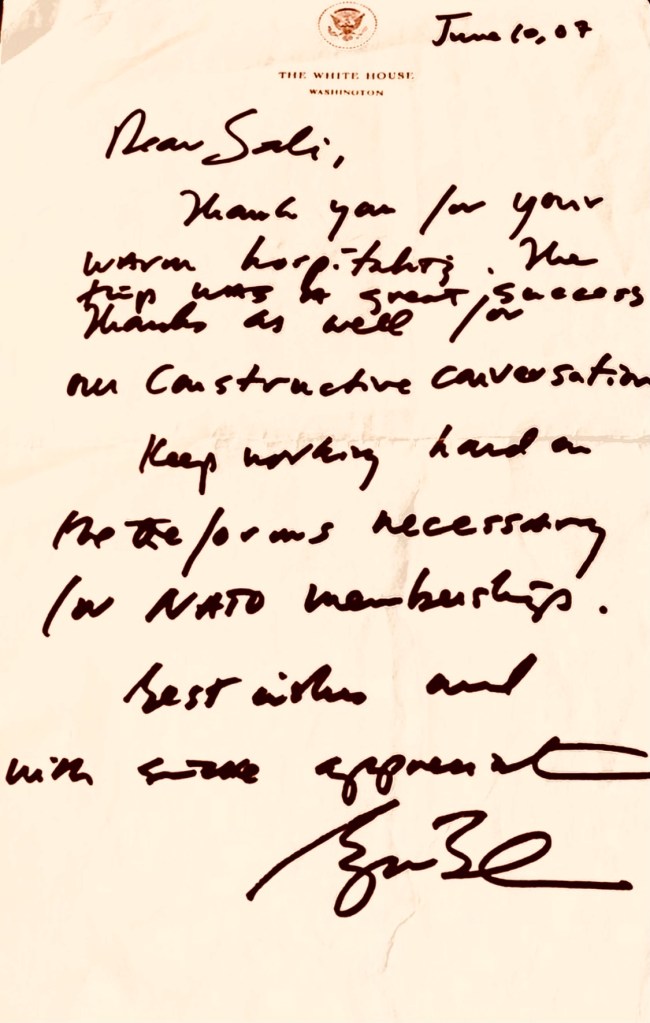 June 10, 07
THE WHITE HOUSE
WASHINGTON
Dear Sali,
Thank you for your
warm hospitality. The
trip was a great success
Thanks as well for
our constructive conversation
Keep working hard on
the reforms necessary
for NATO membership.
Best wishes and
with sincere appreciat